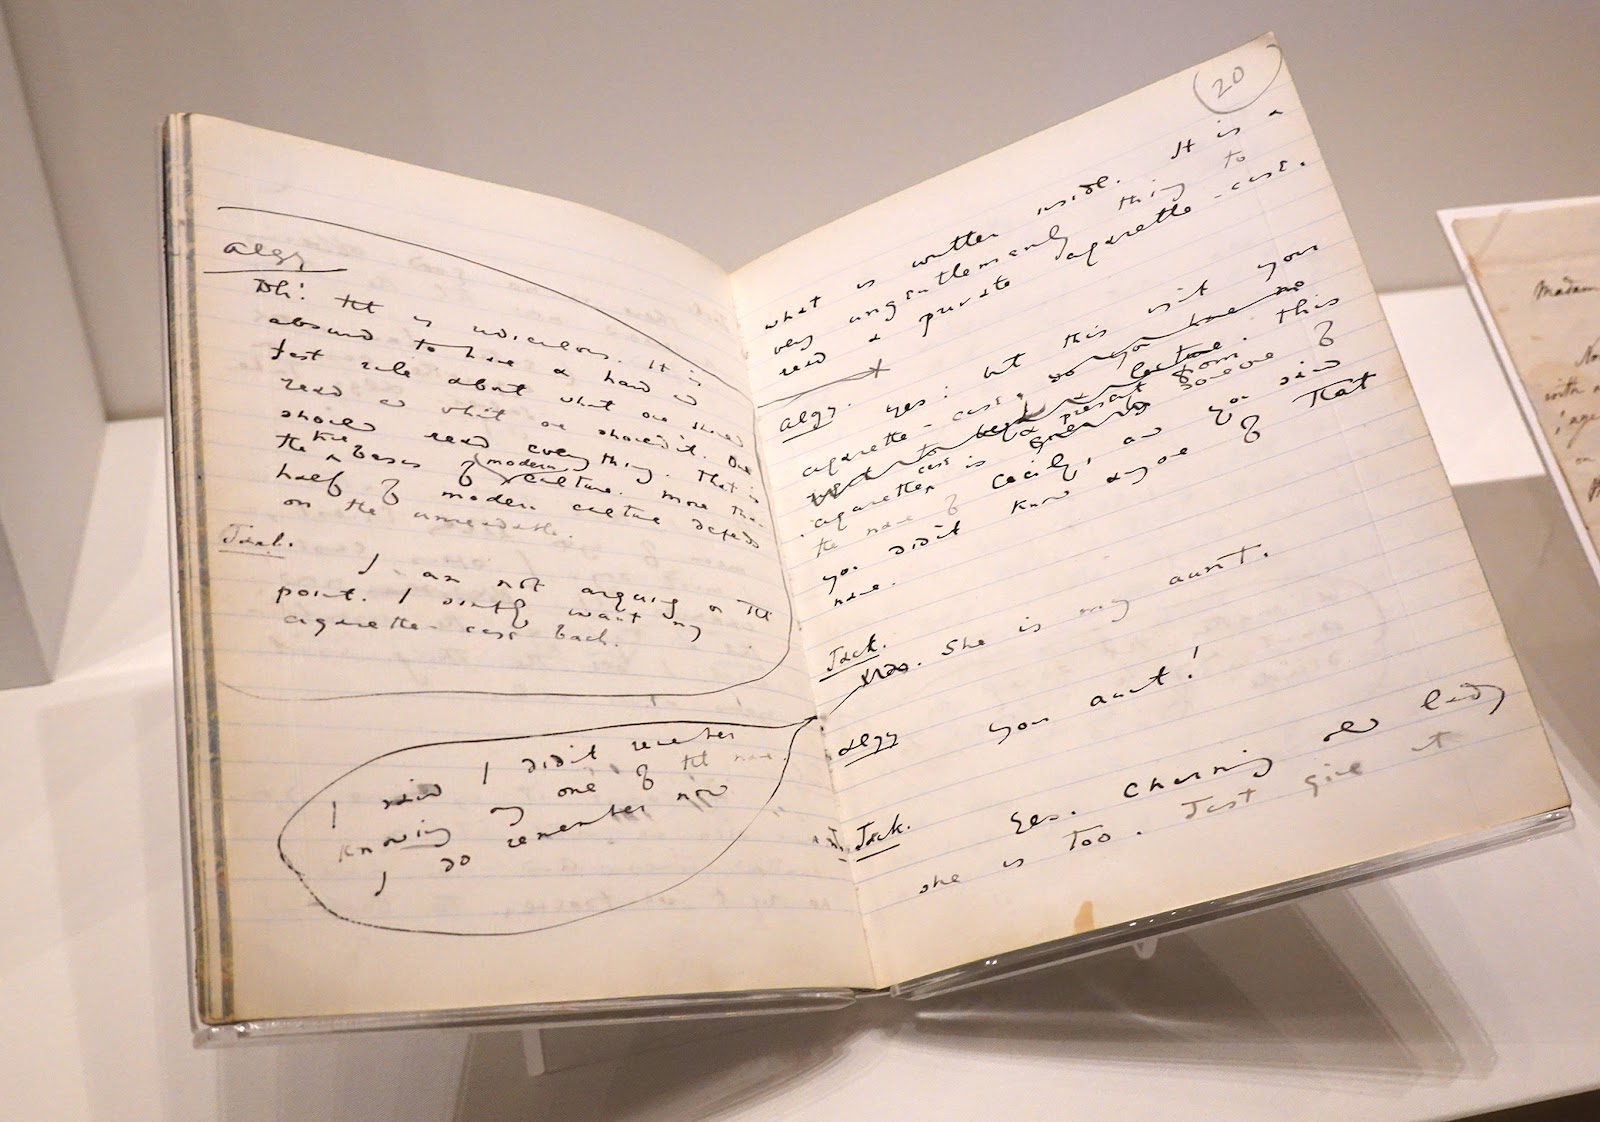 Algy
Oh! It is ridiculous. It is
absurd to have a hard &
fast rule about what one should
read & what one shouldn't. One
should read everything. That is
the
the bases of modern culture. More than
half of modern culture depends
on the unreadable.
Jack.
I am not arguing on the
point. I simply want my
cigarette case back.
I said I didn't remember
knowing any one of the name.
I do remember now
20
what is written inside. It is a
very ungentlemanly thing to
read a private cigarette-case.
Algy. Yes: but this isn't your
cigarette-case; so you have no
lecture. This
cigarette case is a present from
someone of
the name of Cecily, and you said
you didn't know anyone of that
name.
Jack.
She is my aunt.
Algy your aunt!
Jack. Yes. Charming old lady
she is too. Just give it
Madam
No
with
on